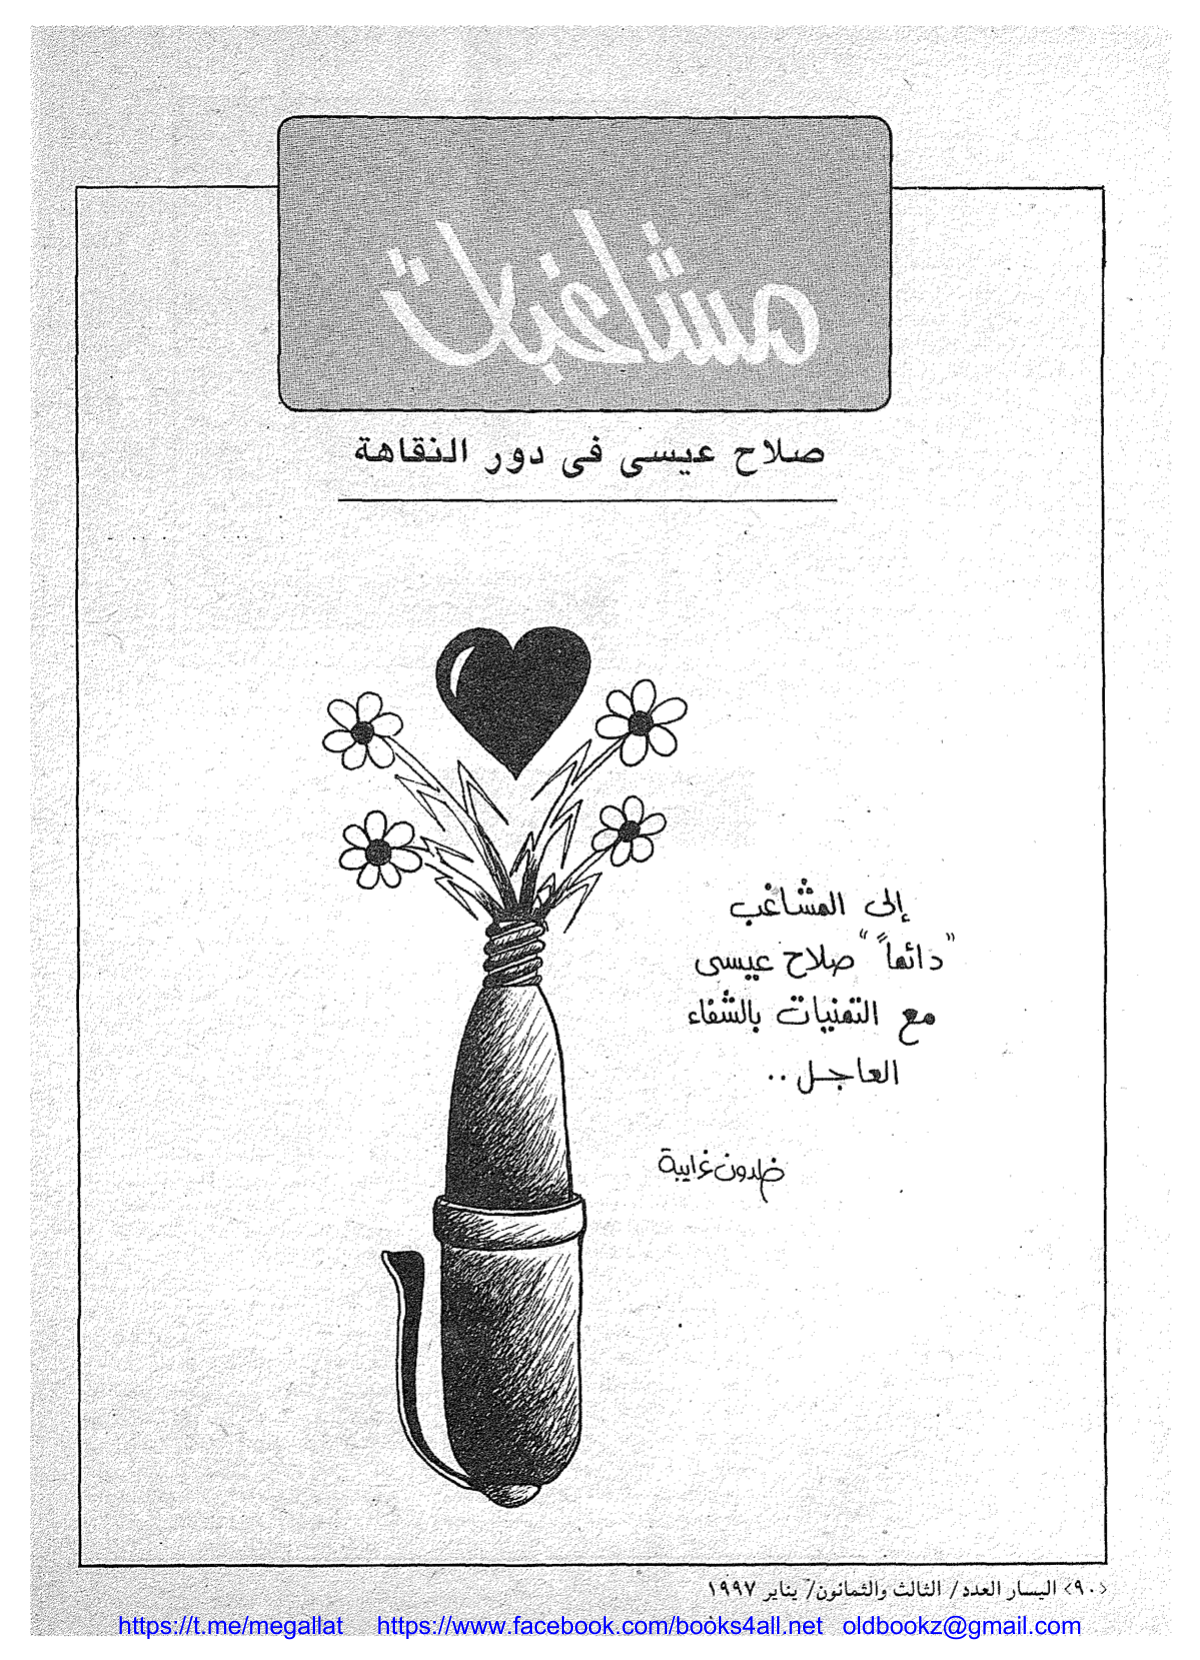 مشاغبات
صلاح عيسى فى دور النقاهة
إلى المشاغب
"دائماً" صلاح عيسى
مع التمنيات بالشفاء
العاجل ..
خلدون غرايبة
<٩٠> اليسار العدد/ الثالث والثمانون/ يناير ١٩٩٧
https://t.me/megallat https://www.facebook.com/books4all.net oldbookz@gmail.com